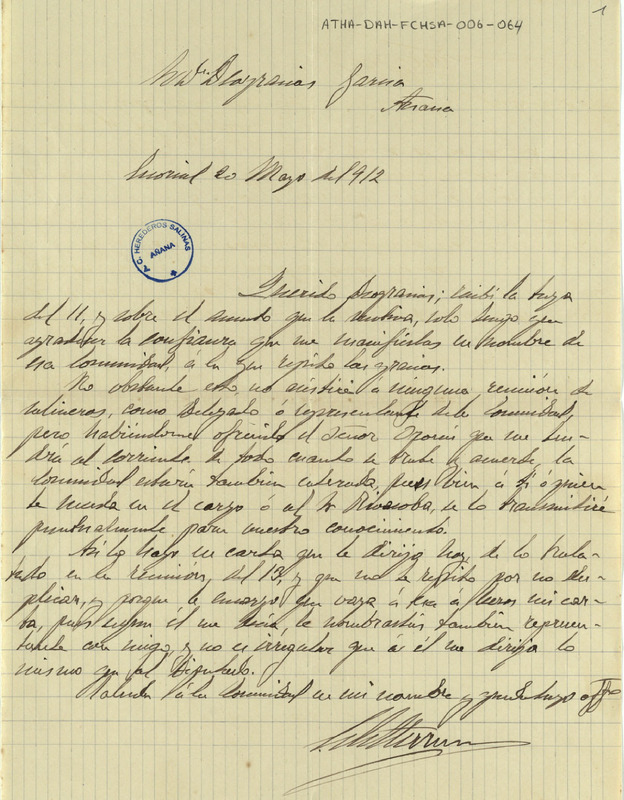 ATHA-DAH-FCHSA-006-064
1
Deogracias Garcia
Añana
20 Mayo del 912
A.C. HEREDEROS SALINAS
AÑANA
Querido Deogracias; recibí la tuya
del 11, y sobre el asunto que la motiva, solo tengo que
agradecer la confianza que me manifiestas en nombre de
esa Comunidad, á la que repito las gracias.
No obstante eso, no asistiré a ninguna reunión de
salineros, como Delegado ó representante de la Comunidad,
pero habiendome ofrecido el Señor que me ten-
drá al corriente de todo cuanto se trate ó acuerde, la
Comunidad estará tambien enterada, pues bien a ti ó quien
te suceda en el cargo ó al Sr Rivacoba, se lo transmitiré
puntualmente para vuestro conocimiento.
Asi lo hago en carta que le dirijo hoy, de lo trata-
tado en la reunión, del 13, y que no te repito por no du-
plicar, y porque le encargo que vaya á esa á leeros mi car-
ta, pues segun él me decia, le nombrasteis tambien represen-
tante con migo, y no es irregular que á él me dirija lo
mismo que al Diputado.
Saluda á la Comunidad en mi nombre y queda tuyo affmo